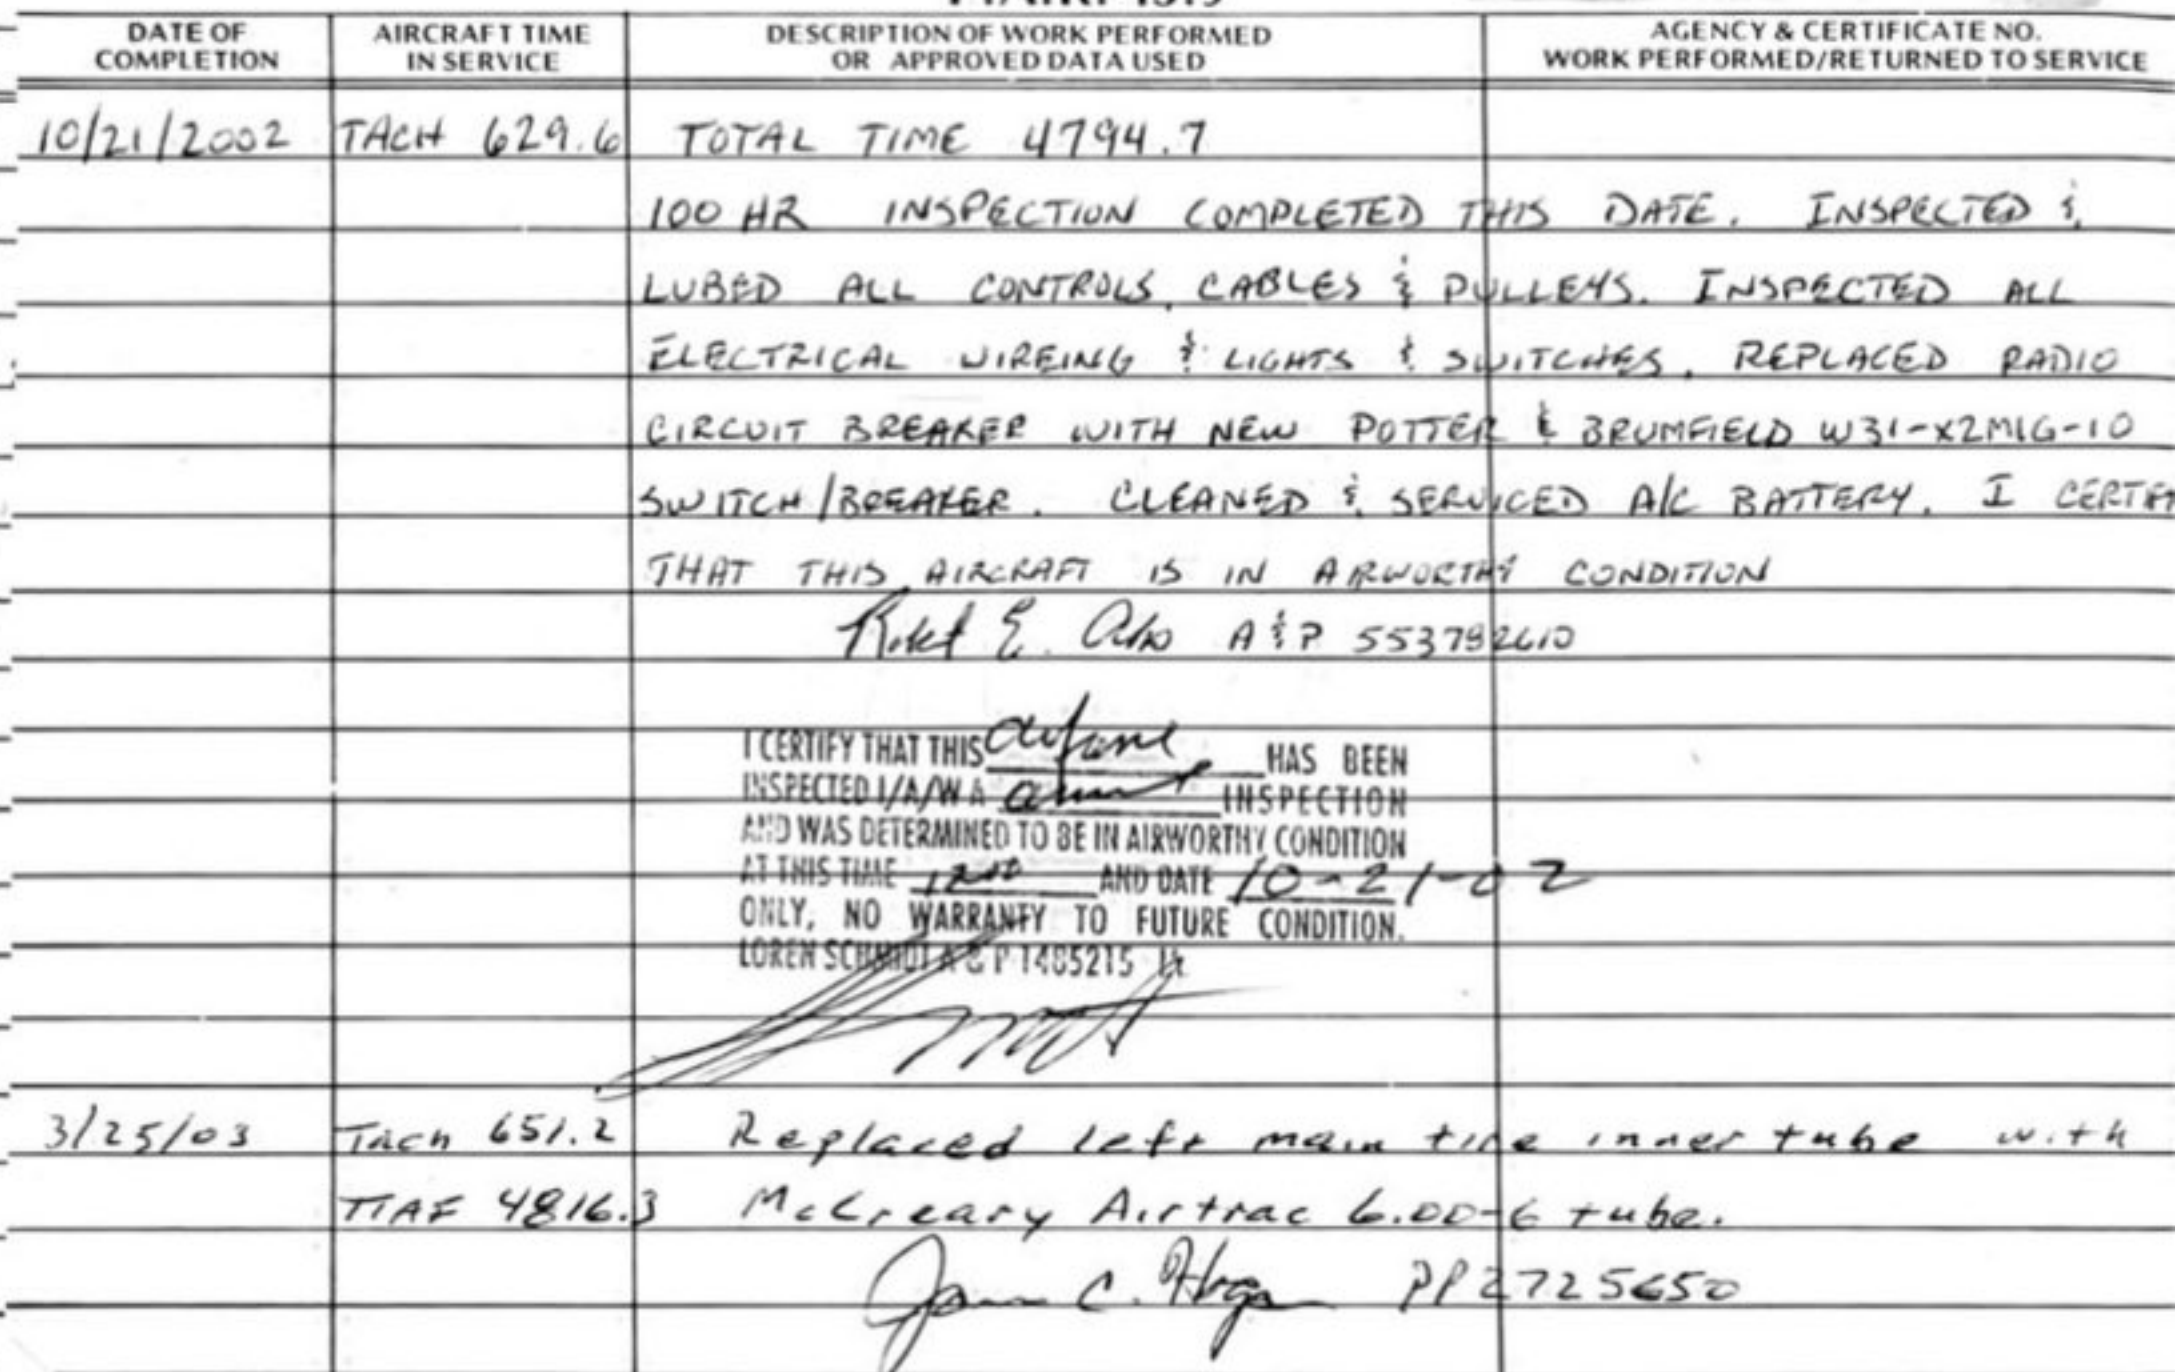 DATE OF COMPLETION
AIRCRAFT TIME IN SERVICE
DESCRIPTION OF WORK PERFORMED OR APPROVED DATA USED
AGENCY & CERTIFICATE NO. WORK PERFORMED/RETURNED TO SERVICE
10/21/2002 TACH 629.6 TOTAL TIME 4794.7
100 HR INSPECTION COMPLETED THIS DATE. INSPECTED &
LUBED ALL CONTROLS, CABLES & PULLEYS. INSPECTED ALL
ELECTRICAL WIREING & LIGHTS & SWITCHES. REPLACED RADIO
CIRCUIT BREAKER WITH NEW POTTER & BRUMFIELD W31-X2M1G-10
SWITCH/BREAKER. CLEANED & SERVICED A/C BATTERY. I CERTIFY
THAT THIS AIRCRAFT IS IN AIRWORTHY CONDITION
E. A&P 553782610
I CERTIFY THAT THIS HAS BEEN
INSPECTED I/A/W A INSPECTION
AND WAS DETERMINED TO BE IN AIRWORTHY CONDITION
AT THIS TIME AND DATE 10-21-02
ONLY, NO WARRANTY TO FUTURE CONDITION.
LOREN SCHMIDT A & P 1485215
3/25/03 Tach 651.2 Replaced left main tire inner tube with
TTAF 4816.3 McCreary Airtrac 6.00-6 tube.
C. PP2725650